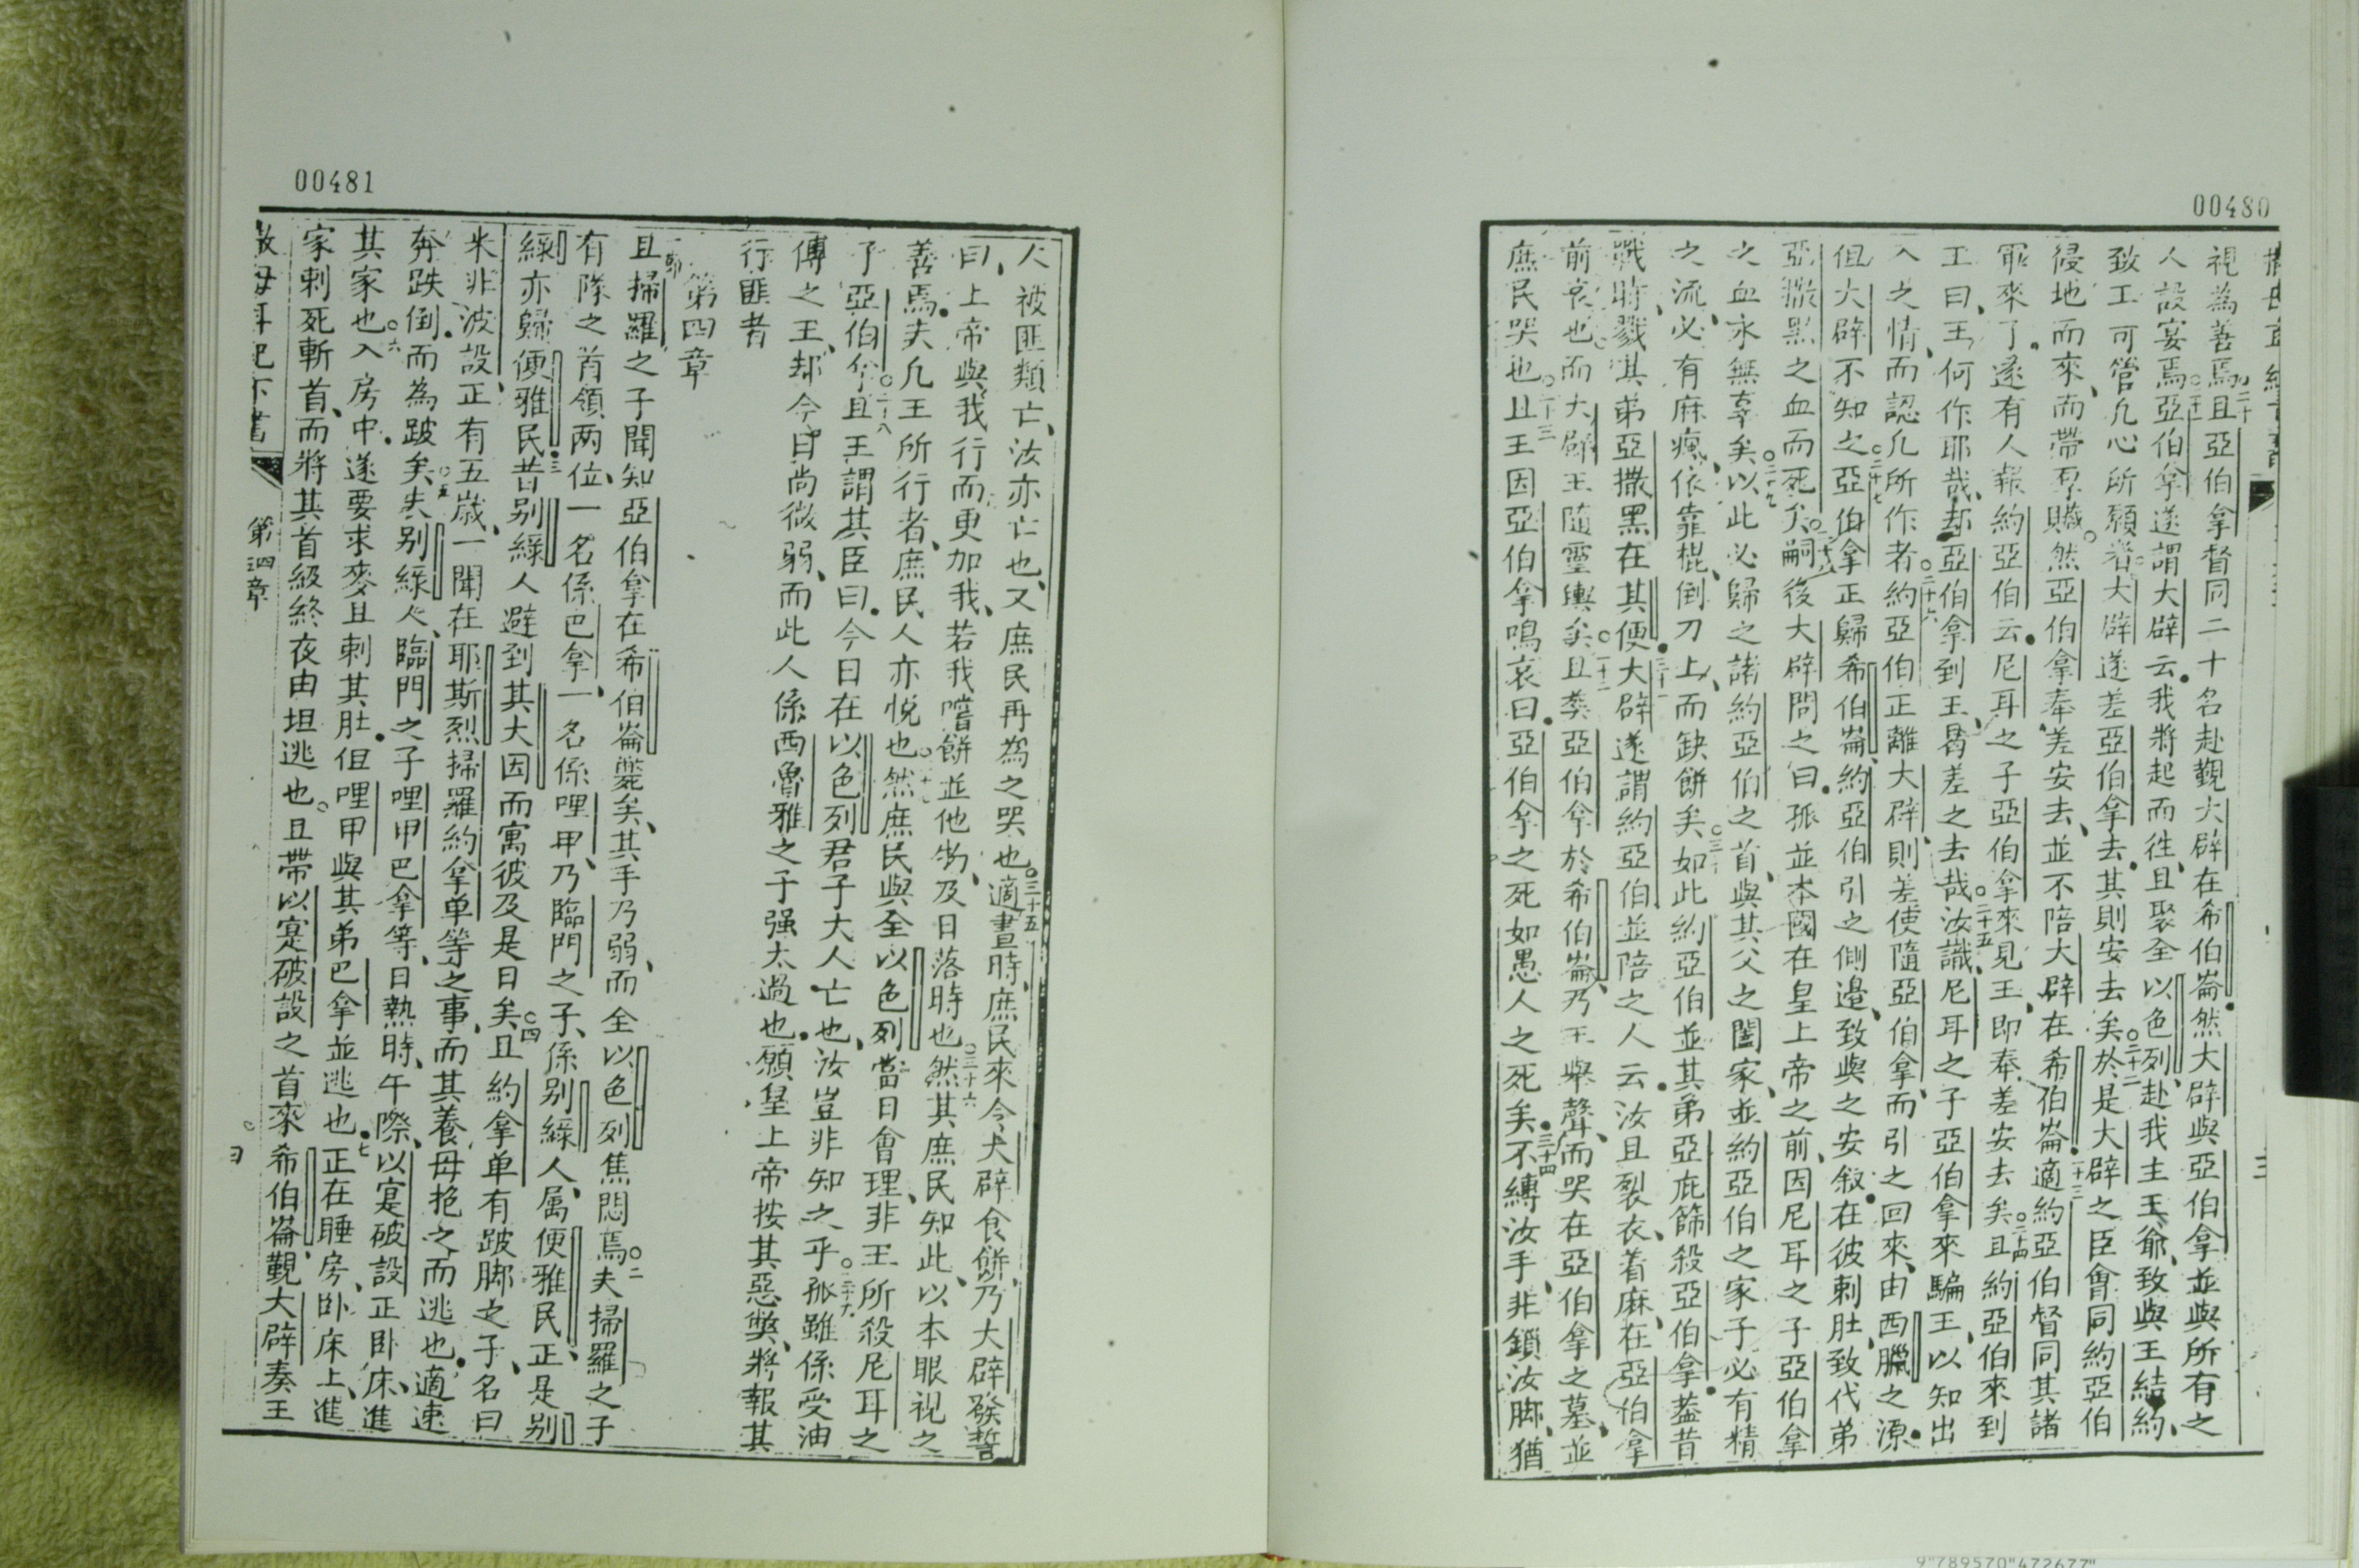 00480
視為善焉○二十且亞伯拿督同二十名赴覲大辟在希伯崙然大辟與亞伯拿並與所有之
人設宴焉亞伯拿遂謂大辟云我將起而徃且聚全以色列赴我主王爺致與王結約
致王可管凡心所願者大辟遂差亞伯拿去其則安去矣○二十二於是大辟之臣會同約亞伯
侵地而來而帶厚贓然亞伯拿奉差安去並不陪大辟在希伯崙○二十三適約亞伯督同其諸
軍來了遂有人報約亞伯云尼耳之子亞伯拿來見王即奉差安去矣○二十四且約亞伯來到
王曰王何作耶哉却亞伯拿到王曷差之去哉○二十五汝識尼耳之子亞伯拿來騙王以知出
入之情而認凡所作者○二十六約亞伯正離大辟則差使隨亞伯拿而引之回來由西臘之源
但大辟不知之○二十七亞伯拿正歸希伯崙約亞伯引之側邉致與之安叙在彼刺肚致代弟
亞撒黑之血而死矣○二十八嗣後大辟問之曰孤並本國在皇上帝之前因尼耳之子亞伯拿
之血永無辜矣○二十九以此必歸之諸約亞伯之首與其父之闔家並約亞伯之家子必有精
之流必有麻瘋依靠棍倒刀上而缺餅矣○三十如此約亞伯並其弟亞庇篩殺亞伯拿葢昔
戰時戮其弟亞撒黑在其便○三十一大辟遂謂約亞伯並陪之人云汝且裂衣着麻在亞伯拿
前哀也而大辟王隨靈輿矣○三十二且葬亞伯拿於希伯崙乃王舉聲而哭在亞伯拿之墓並
庶民哭也○三十三且王因亞伯拿鳴哀曰亞伯拿之死如愚人之死矣○三十四不縛汝手非鎖汝脚猶
00481
人被匪類亡汝亦亡也又庶民再為之哭也○三十五適晝時庶民來令大辟食餅乃大辟發誓
曰上帝與我行而更加我若我嚐餅並他物及日落時也○三十六然其庶民知此以本眼視之
善焉夫凡王所行者庶民人亦悅也○三十七然庶民與全以色列當日會理非王所殺尼耳之
子亞伯拿○三十八且王謂其臣曰今日在以色列君子大人亡也汝豈非知之乎○三十九孤雖係受油
傅之王却今日尚微弱而此人係西魯雅之子强太過也願皇上帝按其惡獘將報其
行匪者
第四章
一節且掃羅之子聞知亞伯拿在希伯崙斃矣其手乃弱而全以色列焦悶焉○二夫掃羅之子
有隊之首領两位一名係巴拿一名係哩甲乃臨門之子係别綠人属便雅民正是别
綠亦歸便雅民○三昔别綠人避到其大因而寓彼及是日矣○四且約拿单有跛脚之子名曰
米非波設正有五歲一聞在耶斯烈掃羅約拿单等之事而其養母抱之而逃也適速
奔跌倒而為跛矣○五夫别綠人臨門之子哩甲巴拿等日熱時午際以寔破設正卧床進
其家也○六入房中遂要求麥且刺其肚但哩甲與其弟巴拿並逃也○七正在睡房卧床上進
家刺死斬首而將其首級終夜由坦逃也○且帶以寔破設之首來希伯崙覲大辟奏王
撒母耳記下書
第四章
9"789570"472677"